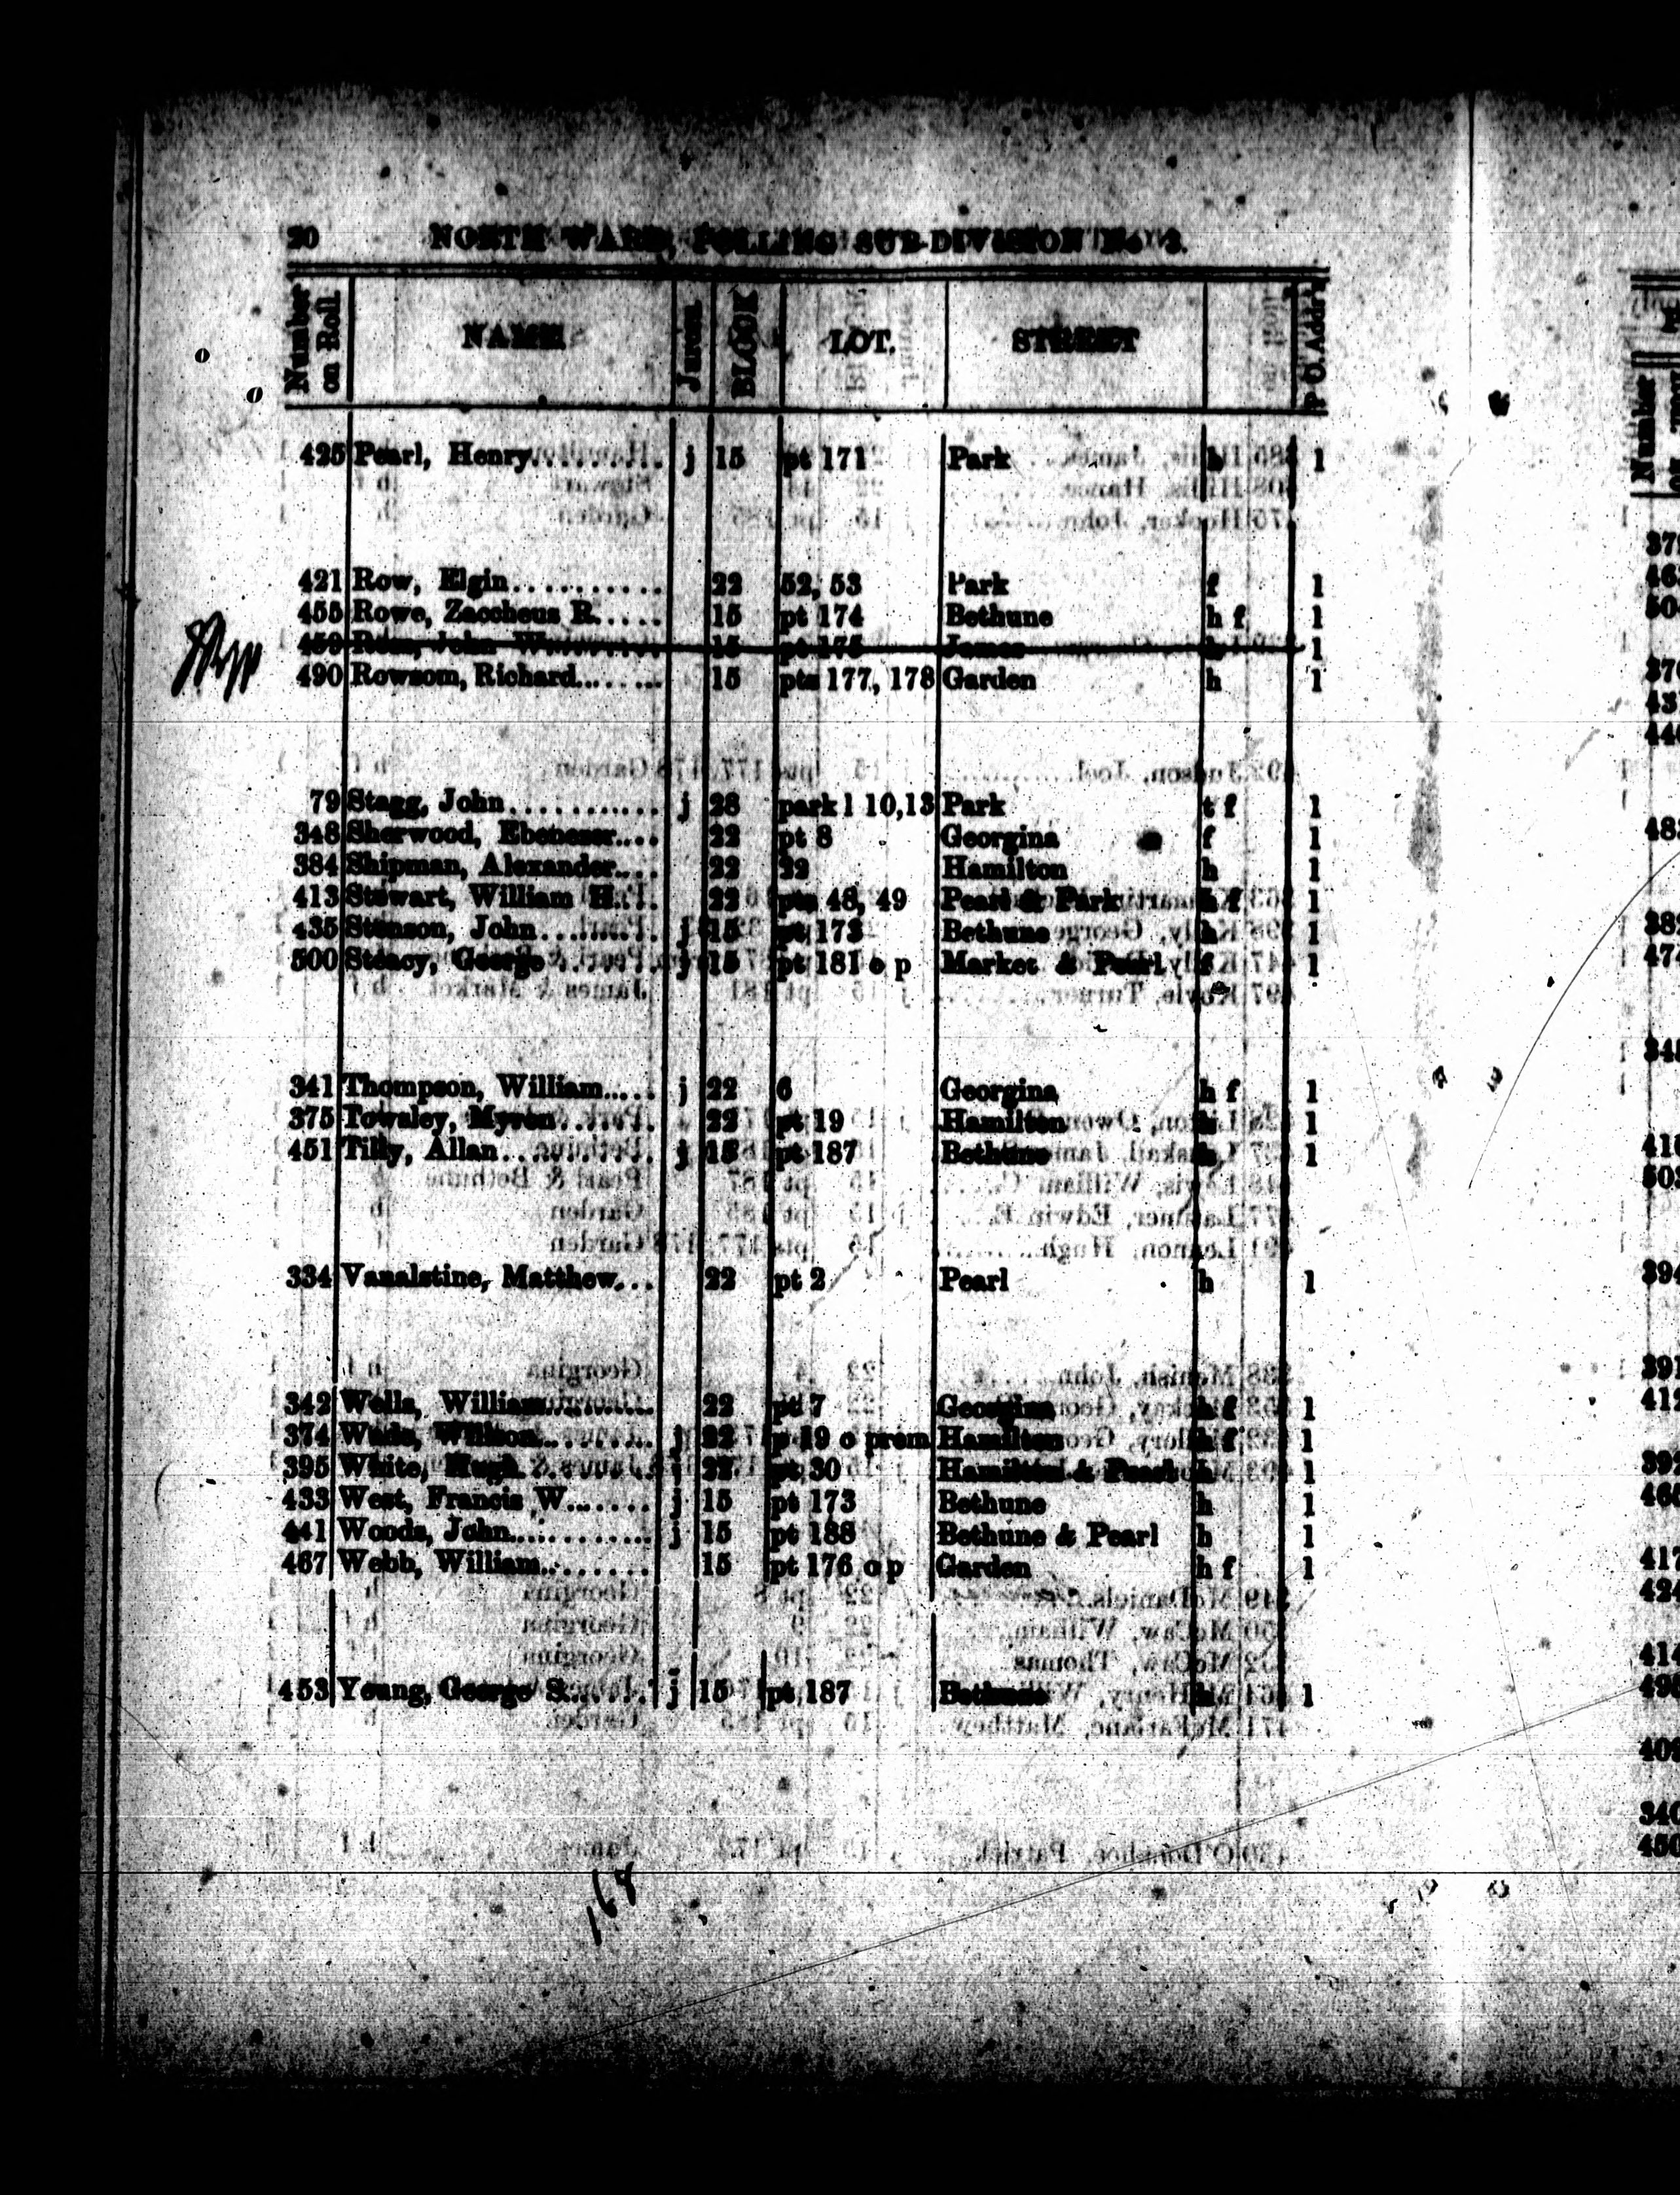 20 NORTH WARD, POLLING SUB-DIVISION No 3.
Number on Roll. NAME Jurors. BLOCK LOT. STREET P O. Addr's
425 Pearl, Henry......... j 15 pt 171 Park h 1
421 Row, Elgin........... 22 52, 53 Park f 1
455 Rowe, Zaccheus R..... 15 pt 174 Bethune h f 1
459 Ross, John W......... 15 pt 175 James h 1
490 Rowsom, Richard...... 15 pts 177, 178 Garden h 1
79 Stagg, John........... j 28 park l 10,13 Park t f 1
348 Sherwood, Ebenezer.... 22 pt 8 Georgina f 1
384 Shipman, Alexander.... 22 Hamilton h 1
413 Stewart, William H.... 22 pts 48, 49 Pearl & Park h f 1
435 Stenson, John......... j 15 pt 172 Bethune h 1
500 Steacy, George........ j 15 pt 181 o p Market & Pearl f 1
341 Thompson, William..... j 22 6 Georgina h f 1
375 Towsley, Myron........ 22 pt 19 Hamilton h 1
451 Tilly, Allan.......... j 15 pt 187 Bethune h 1
334 Vanalstine, Matthew... 22 pt 2 Pearl h 1
342 Wells, William........ 22 pt 7 Georgina h f 1
374 Wade, Willson......... j 22 p 19 o prem Hamilton h f 1
395 White, Hugh........... j 22 pt 30 Hamilton & Pearl h 1
433 West, Francis W....... j 15 pt 173 Bethune h 1
441 Woods, John........... j 15 pt 188 Bethune & Pearl h 1
467 Webb, William......... 15 pt 176 o p Garden h f 1
453 Young, George S....... j 15 pt 187 Bethune h 1
168